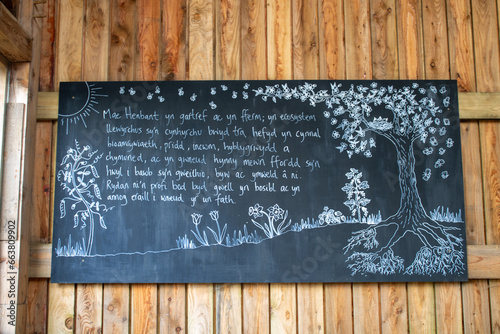 Mae Henbant yn gartref ac yn fferm; yn ecosystem
llewyrchus sy'n cynhyrchu bwyd tra, hefyd yn cynnal
bioamrywiaeth, pridd, incwm, hyblygrwydd a
chymuned, ac yn gwneud hynny mewn ffordd sy'n
hwyl i bawb sy'n gweithio, byw ac ymweld â ni.
Rydan ni'n profi bod byd gwell yn bosibl ac yn
annog eraill i wneud yr un fath.